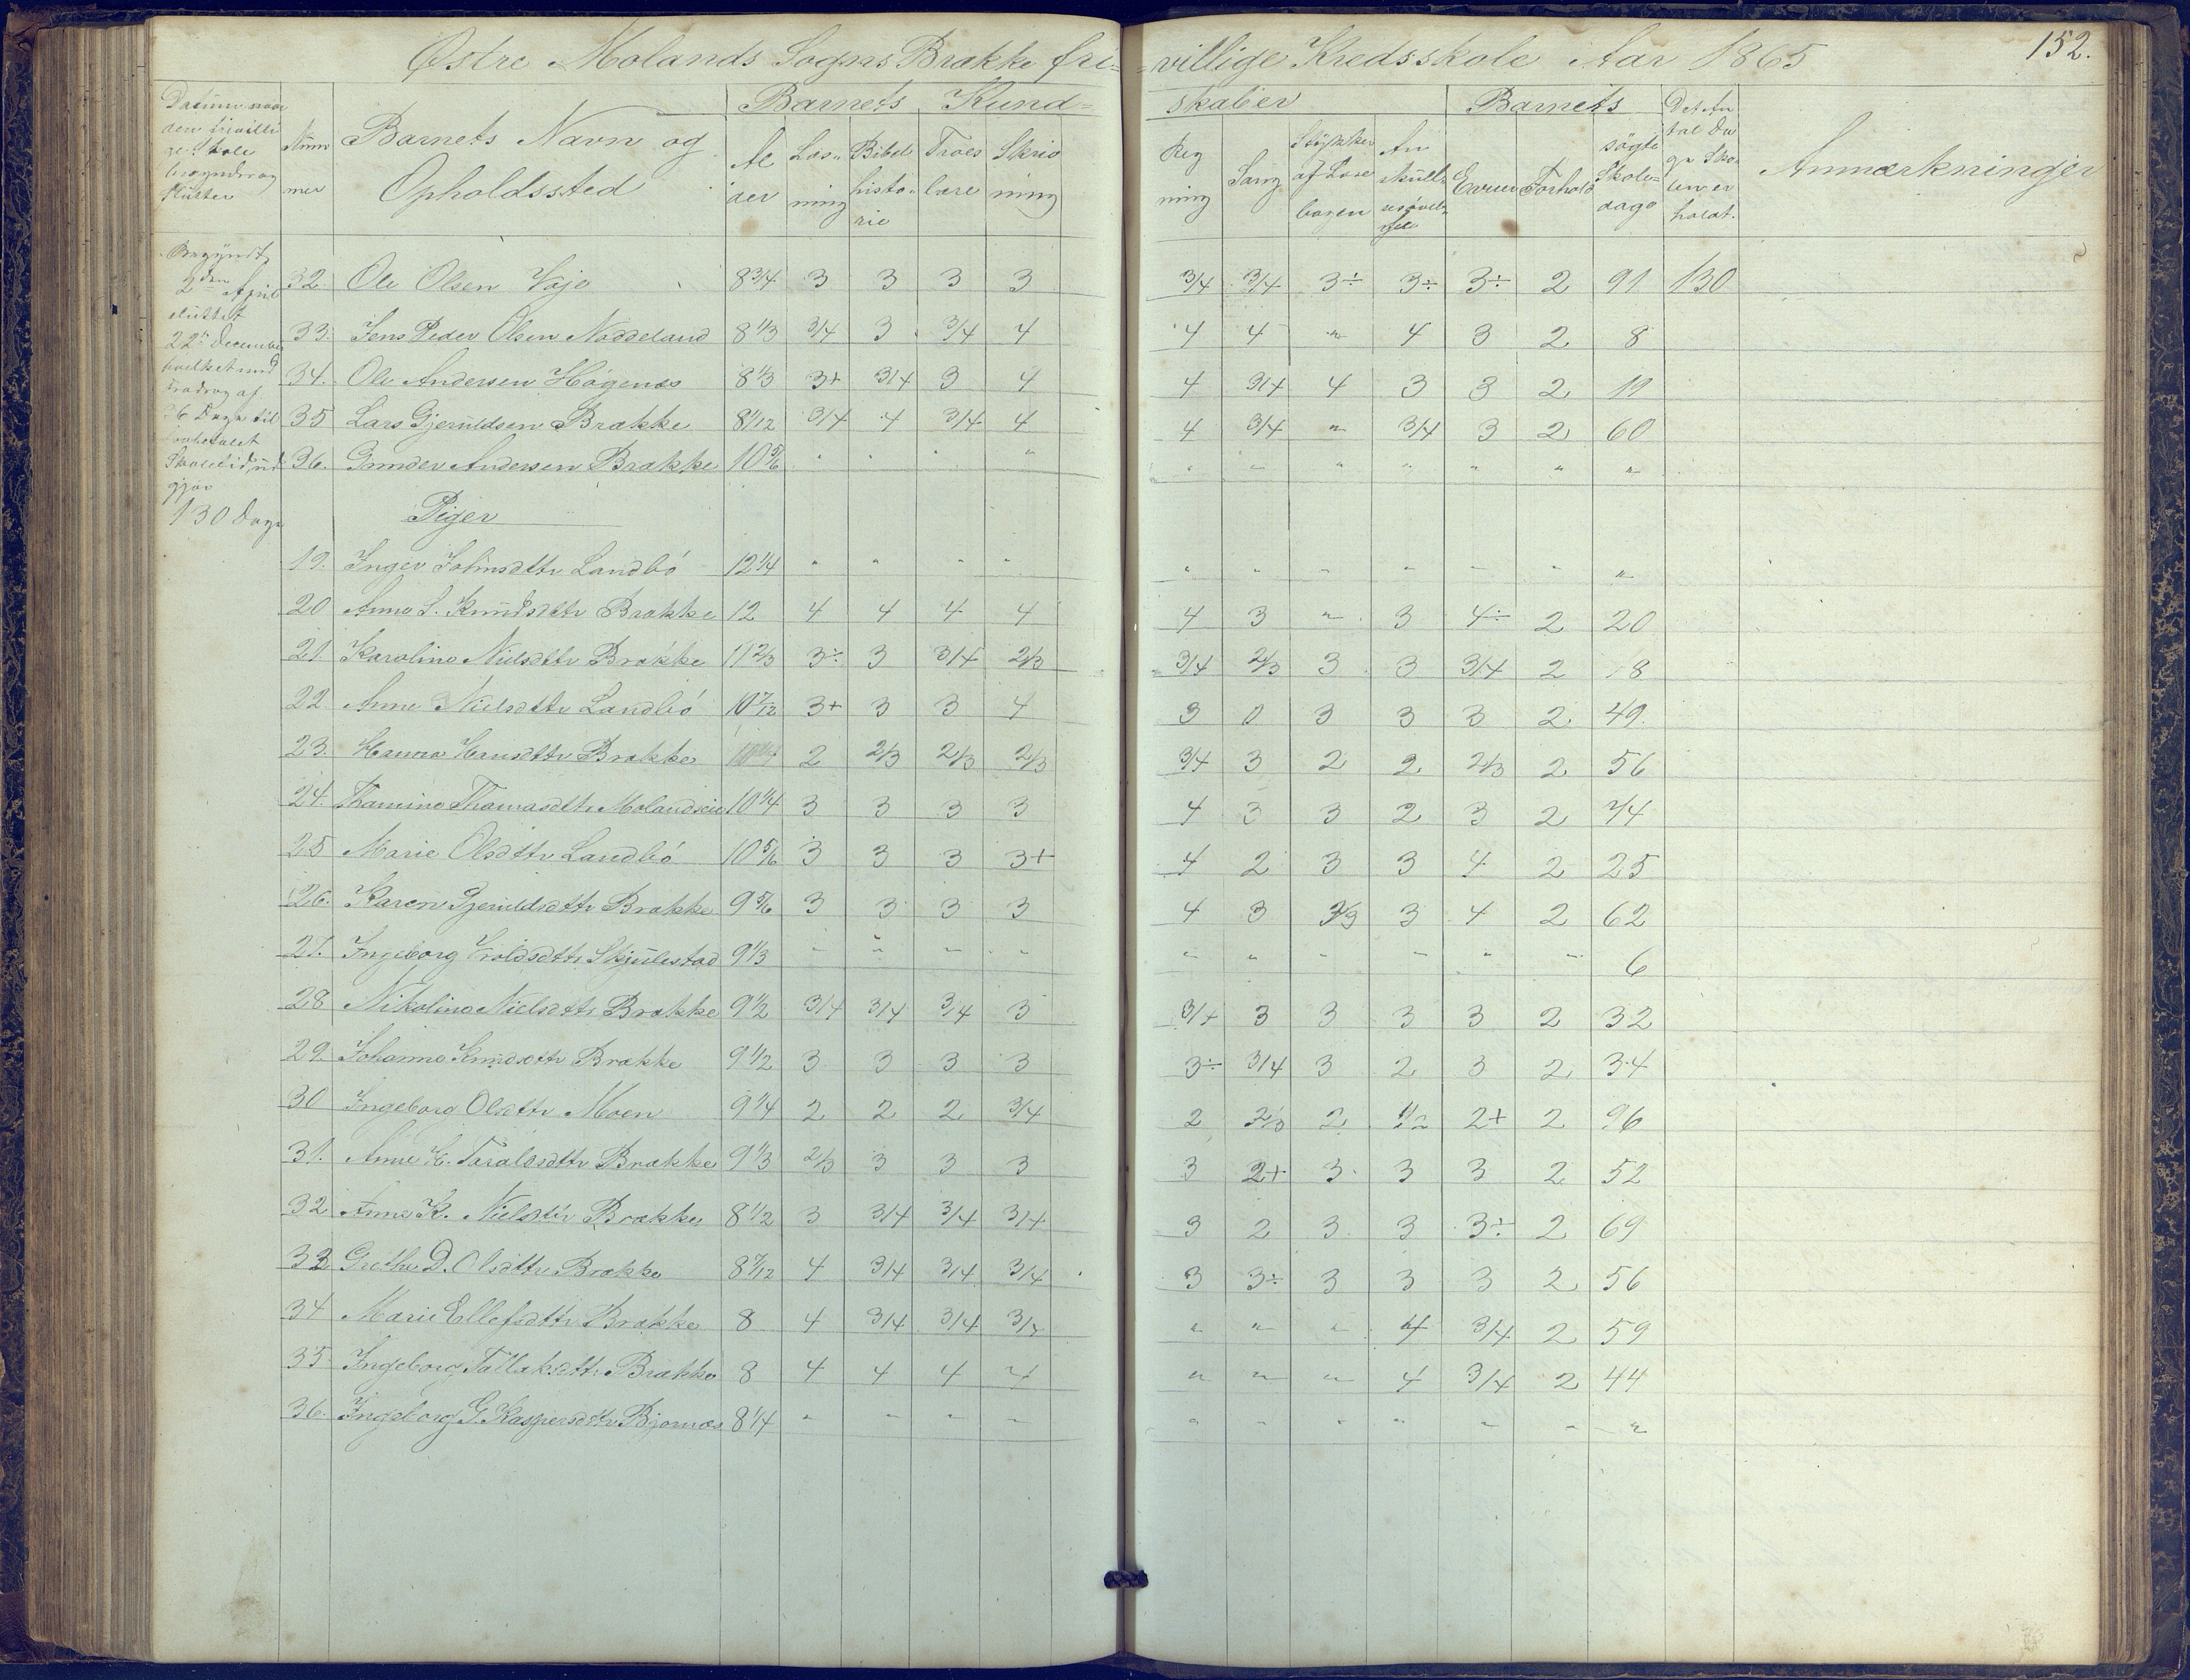 Østre Molands Sogns Brække fri=
=villige Kredsskole Aar 1865
152.
Datum naar
den frivilli
ge Skole
begynder og
slutter
Num
mer
Barnets Navn og
Opholdssted
Barnets Kund=
skaber
Al
der
Læs=
ning
Bibel
histo=
rie
Troes
lære
Skriv
ning
Reg
ning
Sang
Stykker
af Læse
bogen
An
skuels
Barnets
Evner
Forhold
søgte
Skole=
dage
Det An
tal Da
ge Sko
len er
holdt.
Anmærkninger
Begyndt
2den April
sluttet
22de December
hvilket med
Fradrag af
26 Dage til
Skoletid, ud
gjør
130 Dage
32. Ole Olsen Vaje 8 3/4 3 3 3 3 3/4 3/4 3÷ 3÷ 3÷ 2 91 130
33. Jens Peder Olsen Noddeland 8 1/3 3/4 3 3/4 4 4 4 " 4 3 2 8
34. Ole Andersen Høgenæs 8 1/3 3+ 3/4 3 4 4 3/4 4 3 3 2 19
35 Lars Gjeruldsen Brække 8 1/12 3/4 4 3/4 4 4 3/4 " 3/4 3 2 60
36. Gunder Andersen Brække 10 5/6 " " " " " " " " " " "
Piger
19. Inger Johnsdttr Landbø 12 1/4 " " " " " " " " " " "
20 Anna S. Knudsdttr Brække 12 4 4 4 4 4 3 " 3 4÷ 2 20
21 Karoline Nielsdttr Brække 11 2/3 3÷ 3 3/4 2/3 3/4 2/3 3 3 3/4 2 18
22 Anne Nielsdttr Landbø 10 7/12 3+ 3 3 4 3 0 3 3 3 2 49.
23. Hanna Hansdttr Brække 2 2/3 2/3 2/3 3/4 3 2 2 2/3 2 56
24. Thomine Thomasdttr Molandseie 10 1/4 3 3 3 3 4 3 3 2 3 2 74
25 Marie Olsdttr Landbø 10 5/6 3 3 3 3+ 4 2 3 3 4 2 25
26. Karen Gjeruldsdttr Brække 9 5/6 3 3 3 3 4 3 2/3 3 4 2 62
27. Ingeborg Troldsdttr Skjulestad 9 1/3 " " " " " " " " " " 6
28 Nikoline Nielsdttr Brække 9 1/2 3/4 3/4 3/4 3 3/4 3 3 3 3 2 32
29. Johanne Knudsdttr Brække 9 1/2 3 3 3 3 3÷ 3/4 3 2 3 2 34
30 Ingeborg Olsdttr Moen 9 1/4 2 2 2 3/4 2 2/3 2 1/2 2+ 2 96
31. Anne K. Taraldsdttr Brække 9 1/3 2/3 3 3 3 3 2+ 3 3 3 2 52
32 Anne K. Nielsdttr Brække 8 1/2 3 3/4 3/4 3/4 3 2 3 3 3÷ 2 69
33 Grethe D. Olsdttr Brække 8 7/12 4 3/4 3/4 3/4 3 3÷ 3 3 3 2 56
34 Marie Ellefsdttr Brække 8 4 3/4 3/4 3/4 " " " 4 3/4 2 59
35 Ingeborg Tallaksdttr Brække 8 4 4 4 4 " " " 4 3/4 2 44
36. Ingeborg G. Kaspersdttr Bjornæs 8 1/4 " " " " " " " " " " "